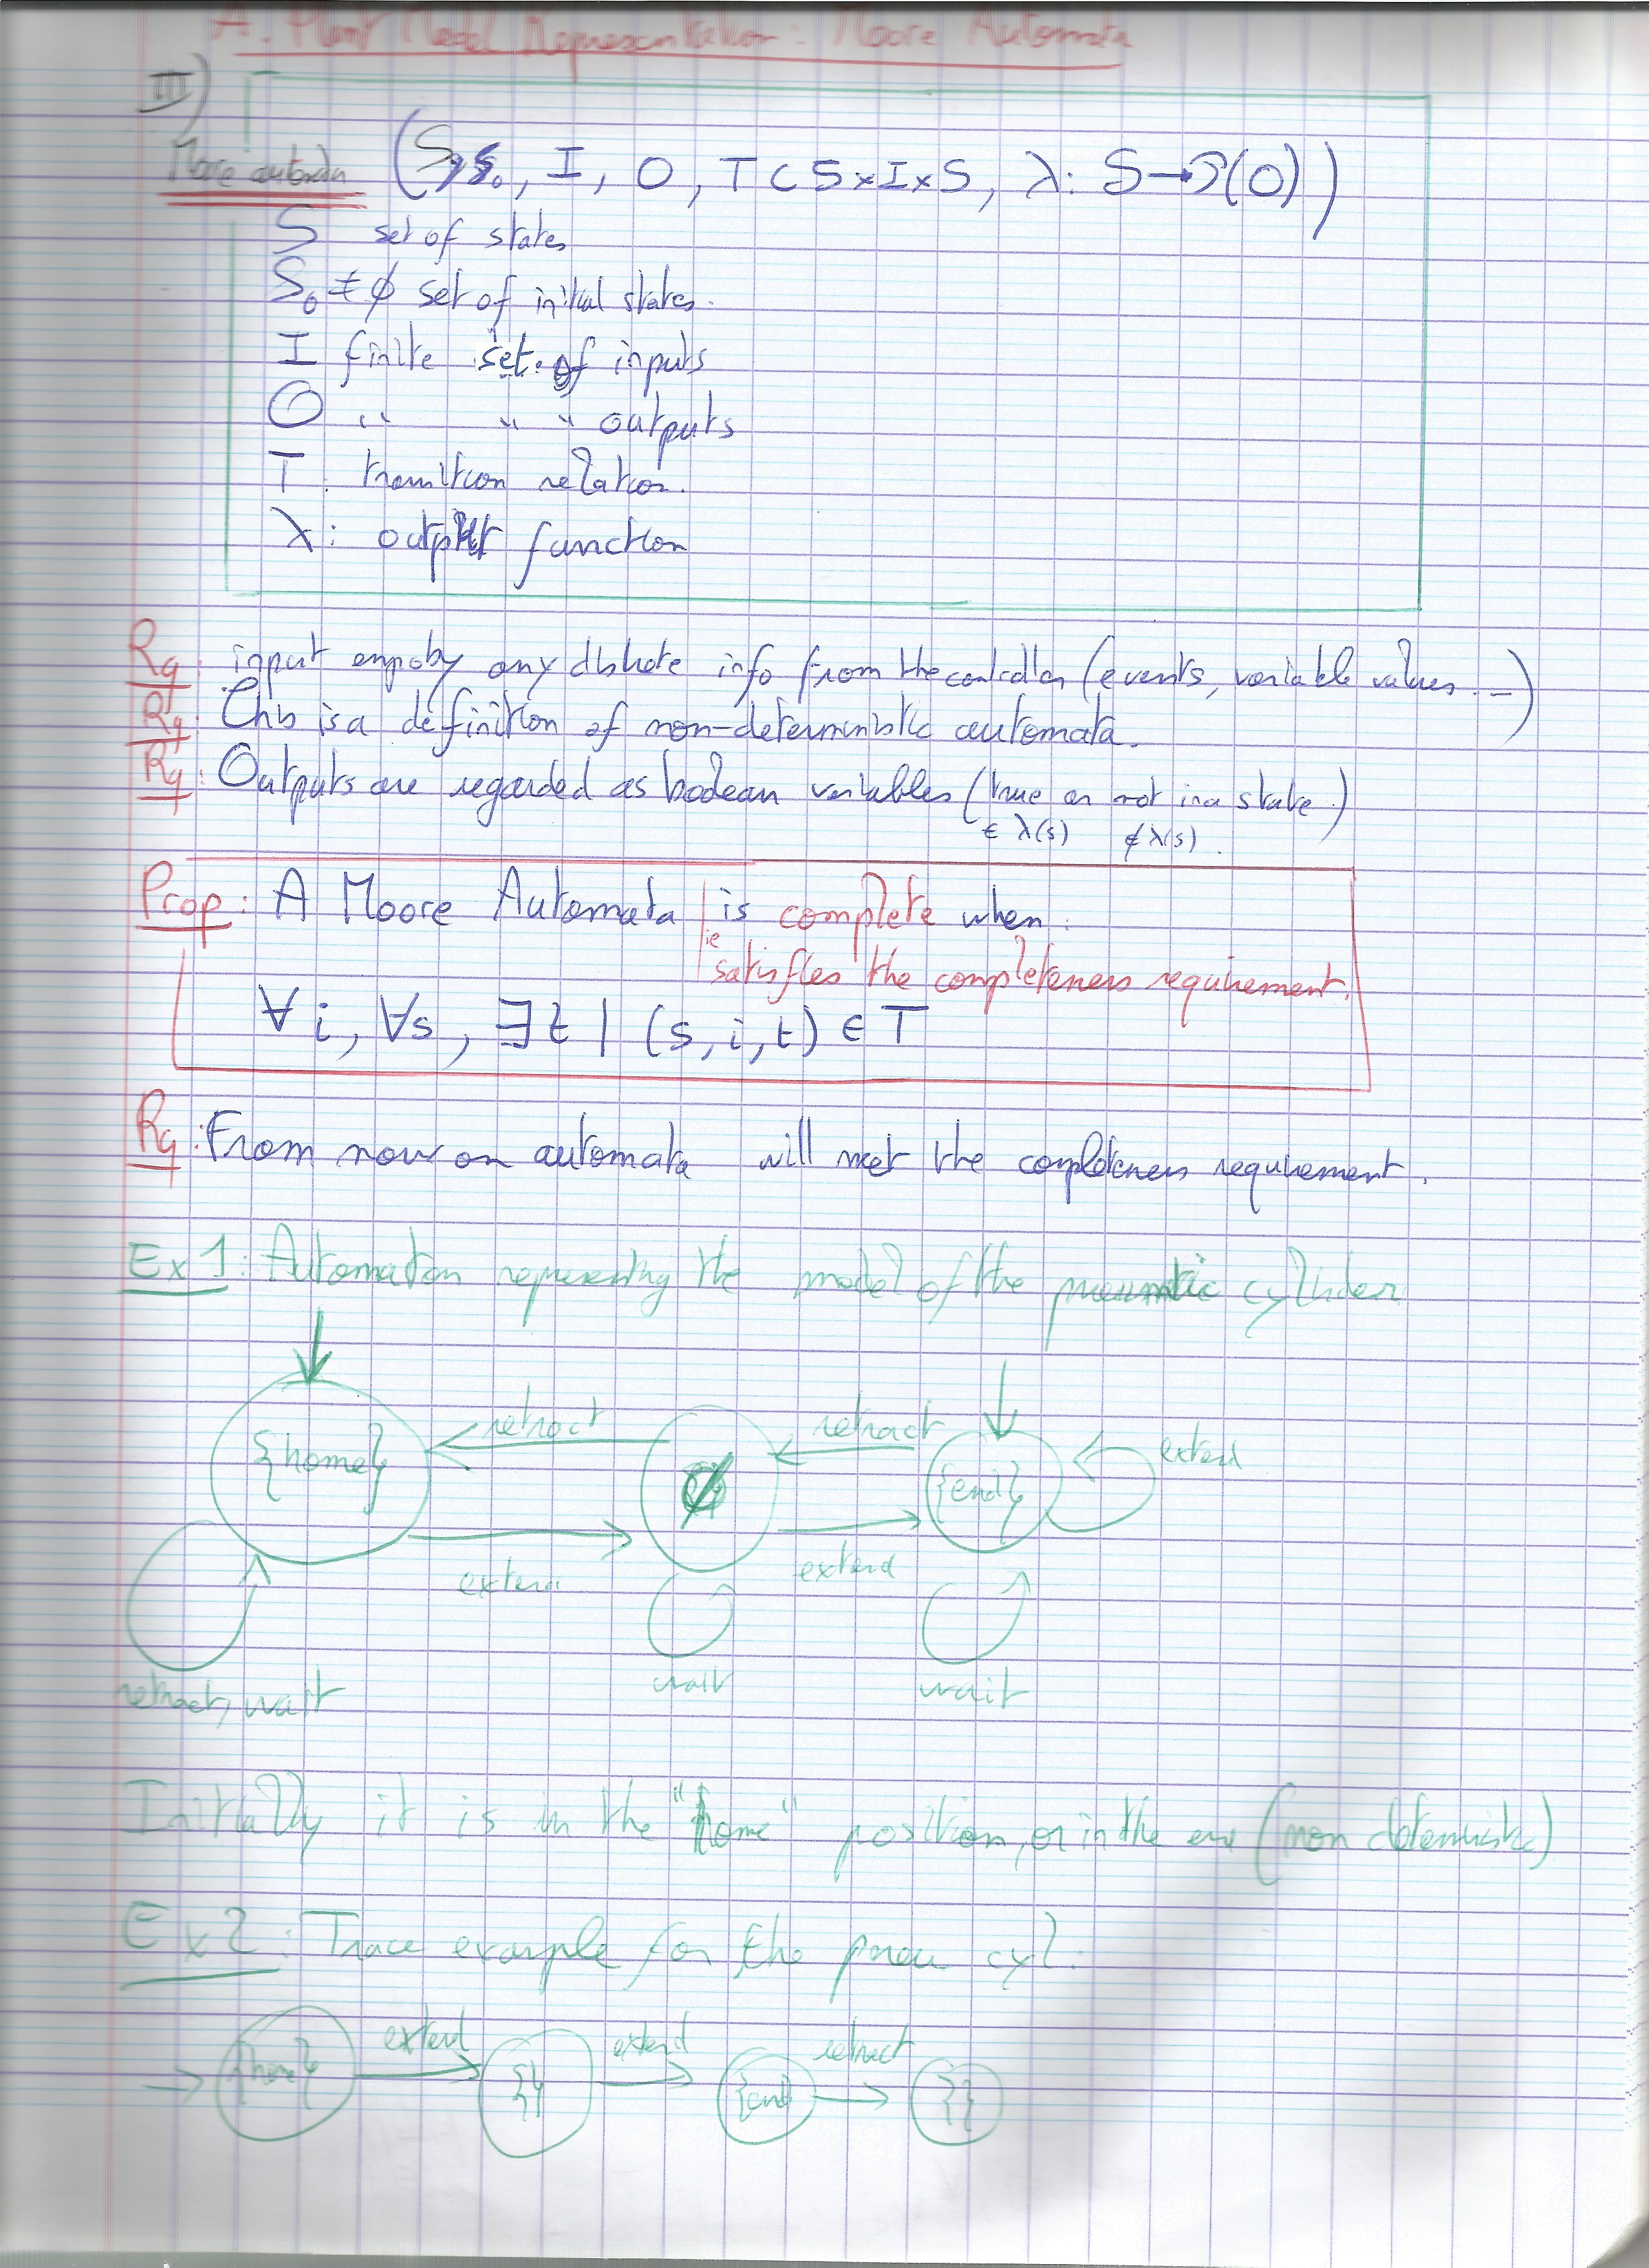 A. Plant Model Representation: Moore Automata
III)
Moore automata (S, S₀, I, O, T ⊂ S×I×S, λ: S→P(O))
S set of states
S₀ ≠ ∅ set of initial states.
I finite set of inputs
O " " " outputs
T : transition relation.
λ : output function
Rq: input any discrete info from the controller (events, variable values ...)
Rq: This is a definition of non-deterministic automata.
Rq: Outputs are regarded as boolean variables (true or not in a state)
∈ λ(s) ∉ λ(s).
Prop: A Moore Automata is complete when:
ie satisfies the completeness requirement.
∀i, ∀s, ∃t | (s, i, t) ∈ T
Rq: From now on automata will meet the completeness requirement.
Ex 1: Automaton representing the model of the pneumatic cylinder
retract retract
{home} ∅ {end} extend
extend extend
retract, wait wait wait
Initially it is in the "home" position, or in the end (non deterministic)
Ex 2: Trace example for the pneu cyl.
extend extend retract
{home} {} {end} {}